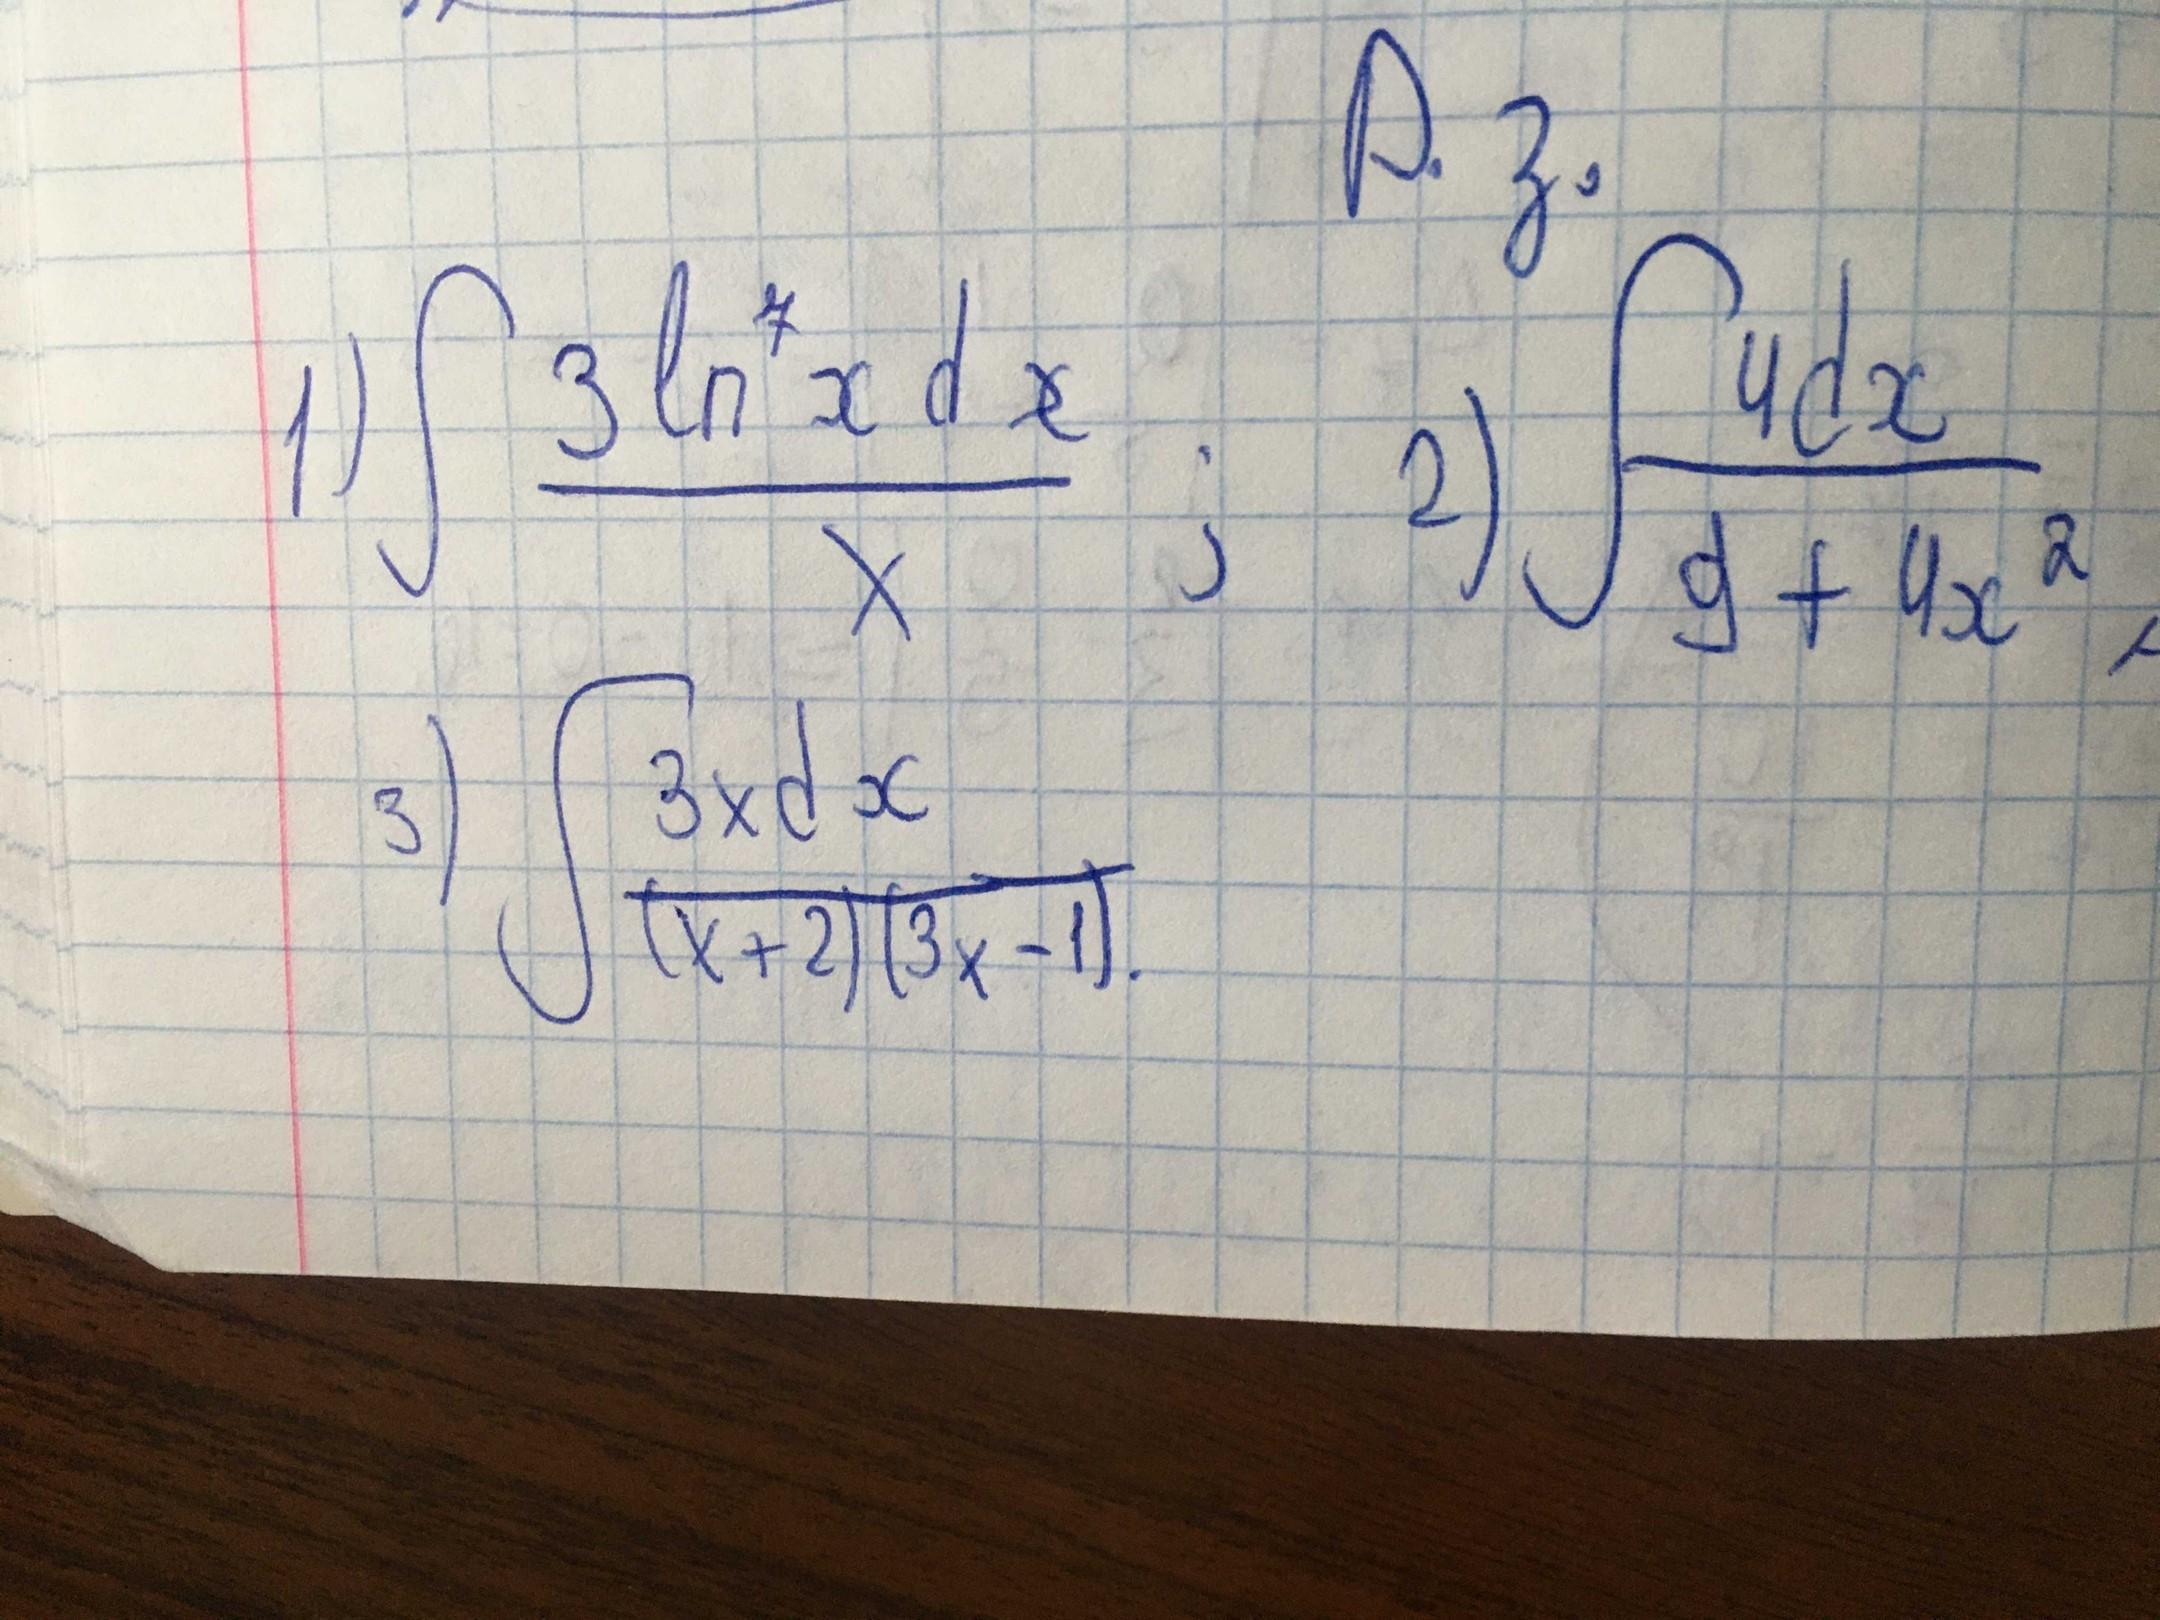 Д. з.
1) ∫ 3 ln⁷ x d x / x ; 2) ∫ 4dx / 9 + 4x² ;
3) ∫ 3xdx / (x+2)(3x-1).